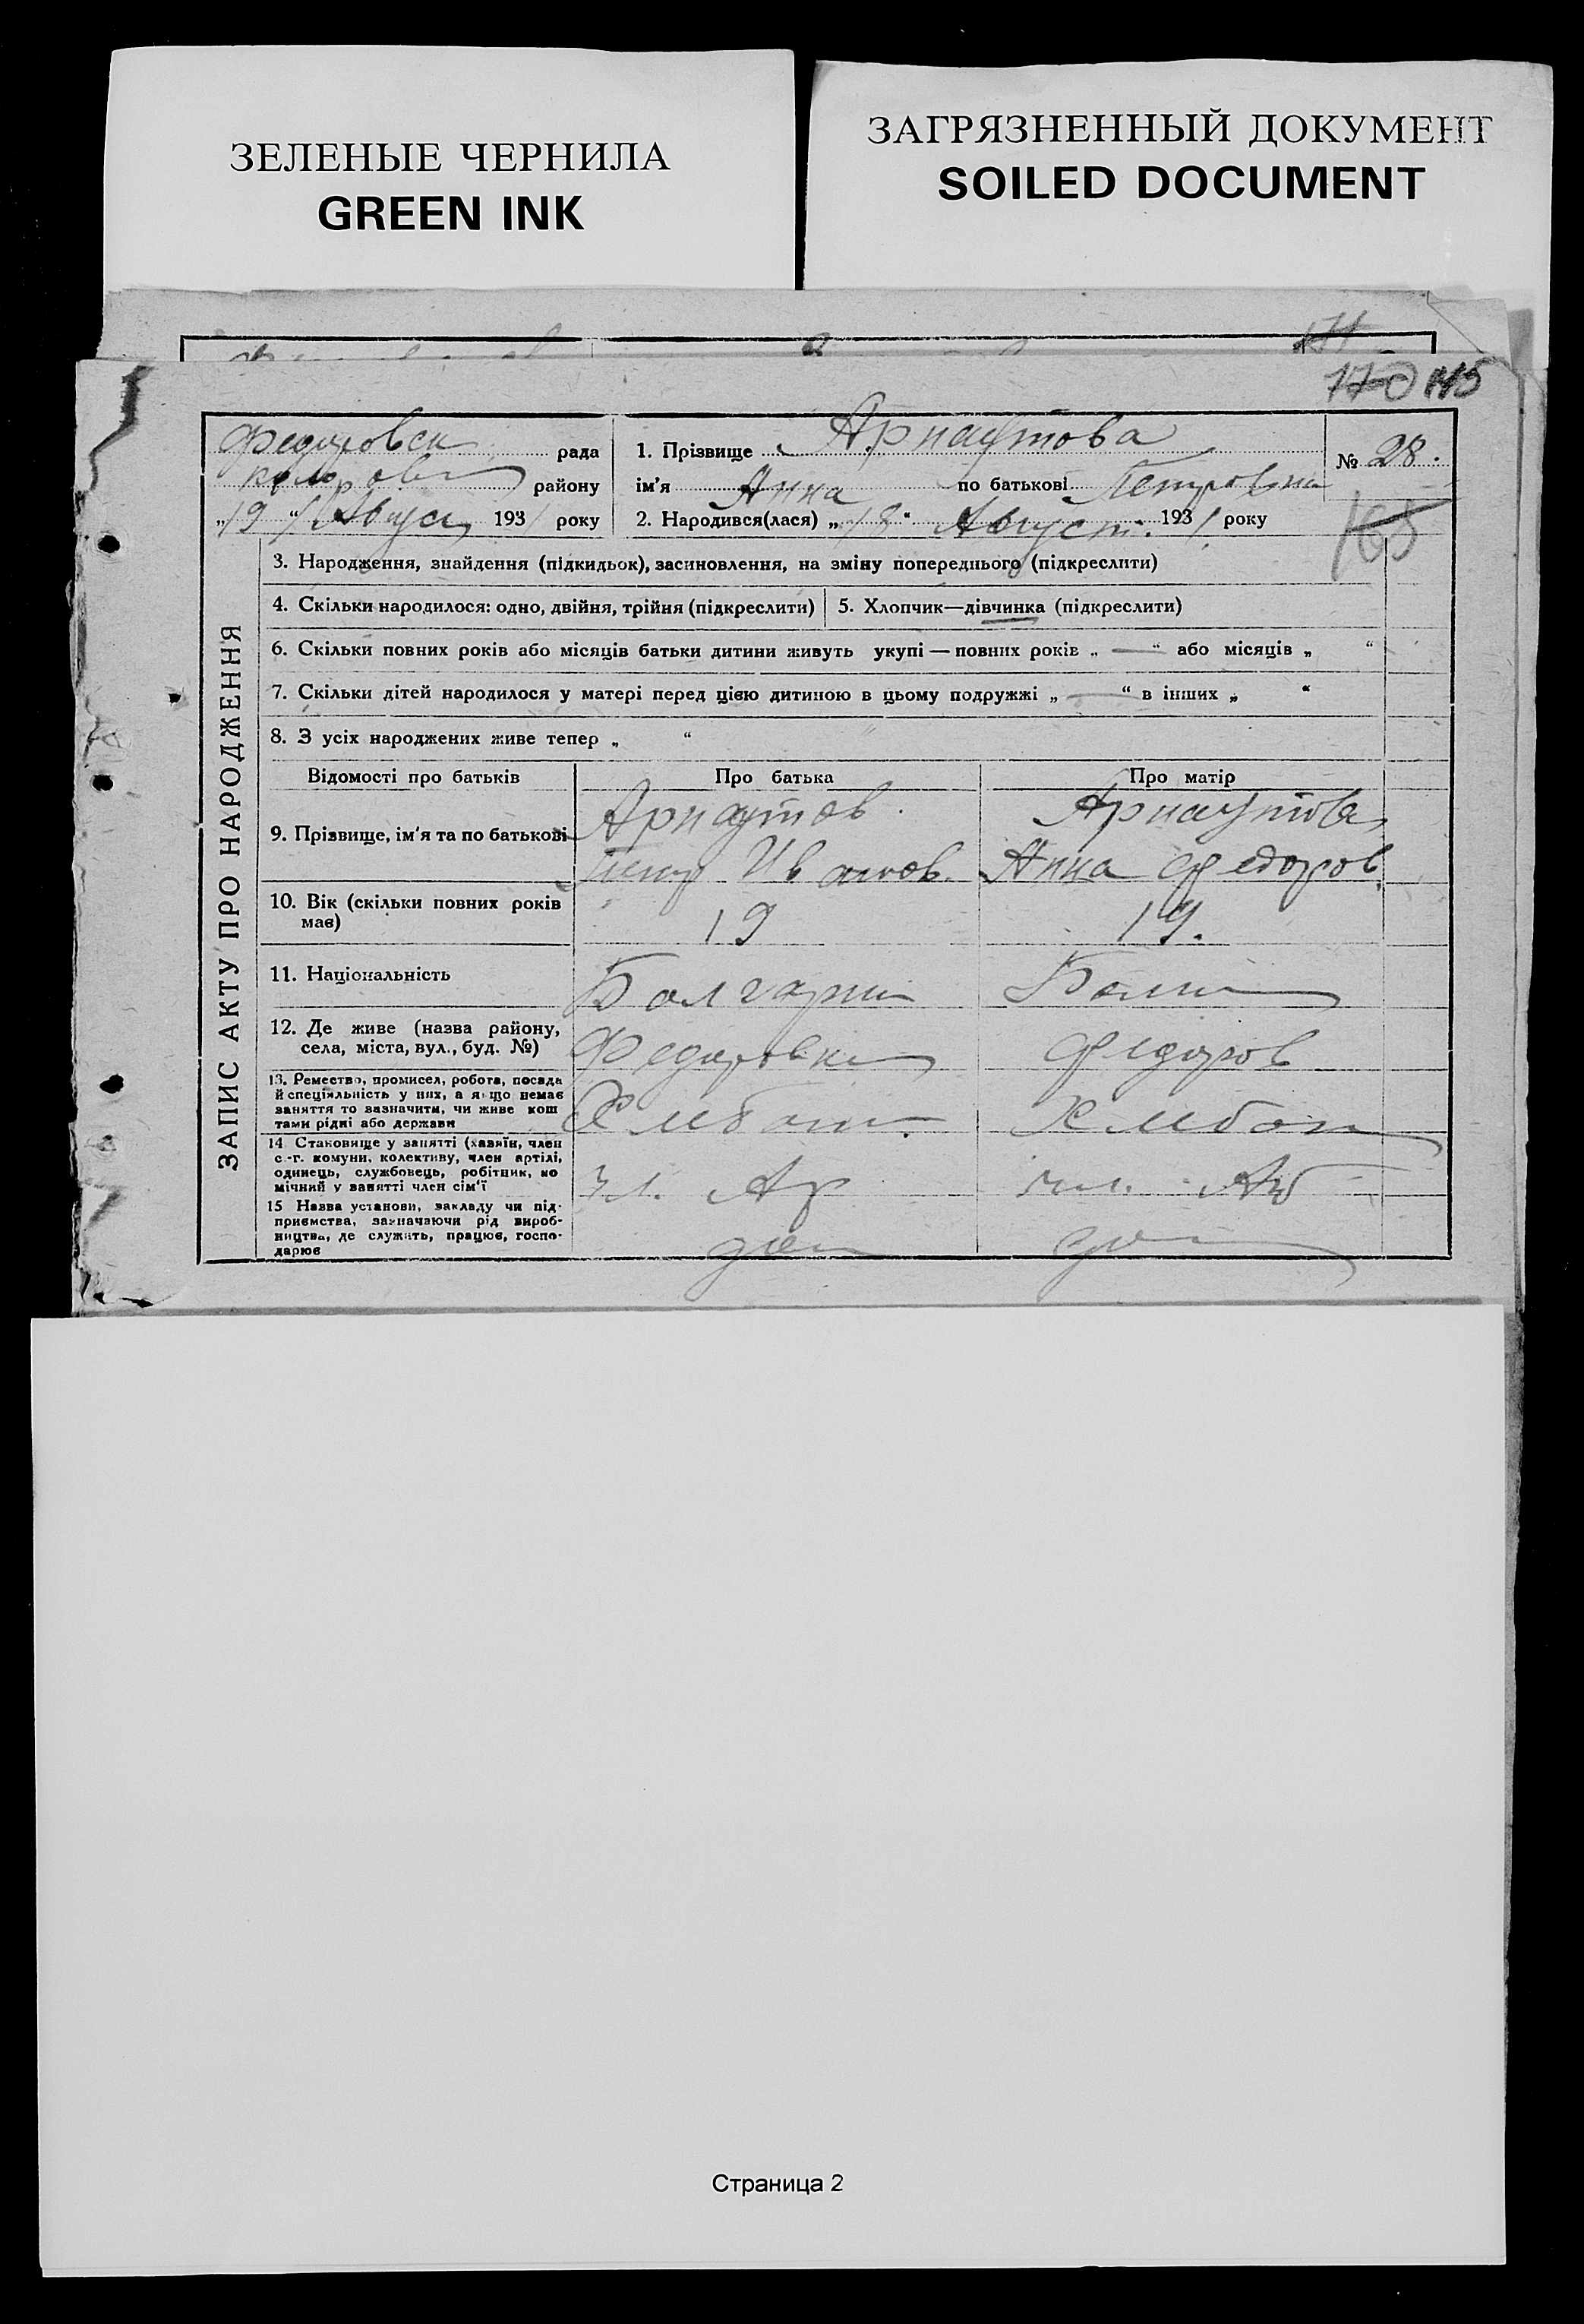 ЗЕЛЕНЫЕ ЧЕРНИЛА
GREEN INK
ЗАГРЯЗНЕННЫЙ ДОКУМЕНТ
SOILED DOCUMENT
170 145
Федоровск рада
району
„19“ Август 1931 року
1. Прізвище Арнаутова
ім'я Анна по батькові Петровна
2. Народився(лася) „18“ Август. 1931 року
№ 28.
165
ЗАПИС АКТУ ПРО НАРОДЖЕННЯ
3. Народження, знайдення (підкидьок), засиновлення, на зміну попереднього (підкреслити)
4. Скільки народилося: одно, двійня, трійня (підкреслити) 5. Хлопчик—дівчинка (підкреслити)
6. Скільки повних років або місяців батьки дитини живуть укупі — повних років „ — “ або місяців „ “
7. Скільки дітей народилося у матері перед цією дитиною в цьому подружжі „ — “ в інших „ “
8. З усіх народжених живе тепер „ “
Відомості про батьків Про батька Про матір
9. Прізвище, ім'я та по батькові
Арнаутов
Петр Иванов.
Арнаутова
Анна Федоров.
10. Вік (скільки повних років
має)
19 19.
11. Національність
Болгарин
12. Де живе (назва району,
села, міста, вул., буд. №)
Федоровка Федоров
13. Ремество, промисел, робота, посада
й спеціяльність у них, а якщо немає
заняття то зазначити, чи живе кош
тами рідні або держави
14 Становище у занятті (хазяїн, член
с.-г. комуни, колективу, член артілі,
одинець, службовець, робітник, по
мічний у занятті член сім'ї
чл. Ар чл.
15 Назва установи, закладу чи під-
приємства, зазначаючи рід вироб-
ництва, де служить, працює, госпо-
дарює
Страница 2